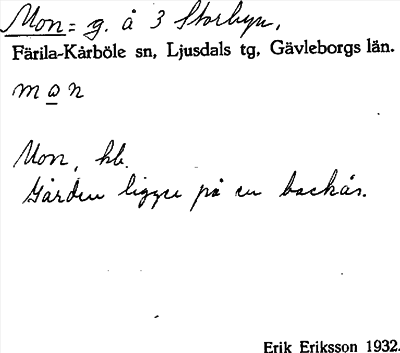 Mon = g. å 3 Storbyn,
Färila-Kårböle sn, Ljusdals tg, Gävleborgs län.
mon
Mon, hb.
Gården ligger på en backås.
Erik Eriksson 1932.